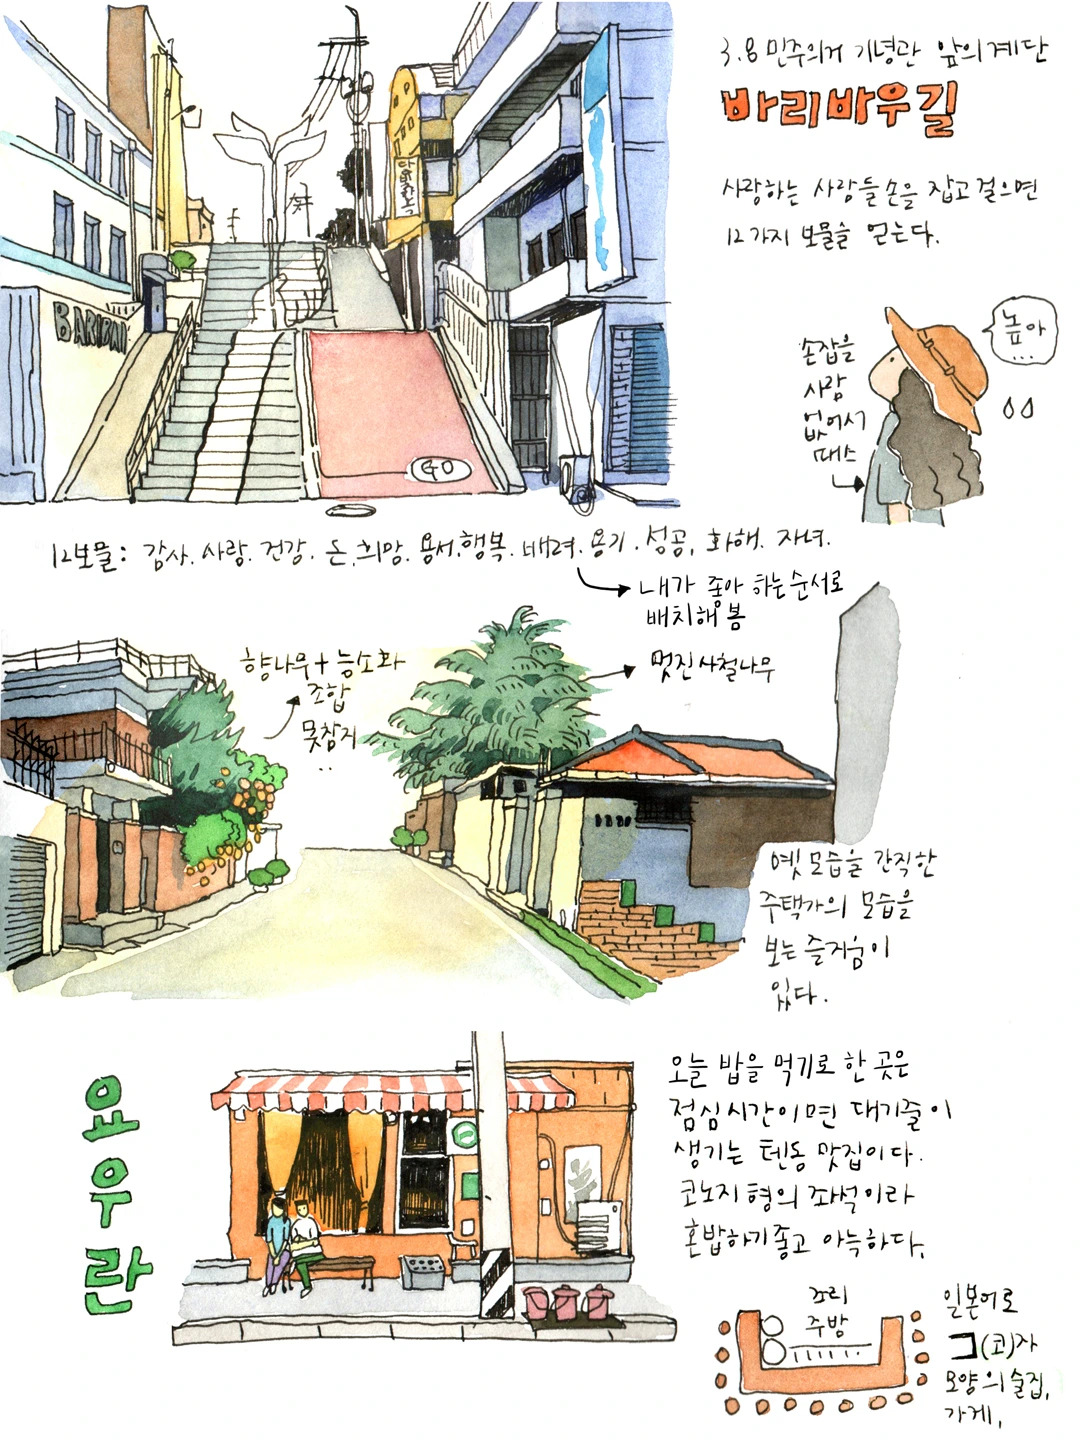 3.8 민주의거 기념관 앞의 계단
바리바우길
사랑하는 사람들 손을 잡고 걸으면
12가지 보물을 얻는다.
BARIBAU
GO
손잡을
사람
없어서
때쓰
높아
...
12보물: 감사. 사랑. 건강. 돈. 희망. 용서. 행복. 배려. 용기. 성공. 화해. 자녀.
내가 좋아 하는 순서로
배치해 봄
향나무+능소화
조합
못참지
멋진 사철나무
옛 모습을 간직한
주택가의 모습을
보는 즐거움이
있다.
요우란
오늘 밥을 먹기로 한 곳은
점심시간이면 대기줄이
생기는 텐동 맛집이다.
코노지형의 좌석이라
혼밥하기 좋고 아늑하다.
조리
주방
일본어로
コ(코)자
모양의 술집,
가게,